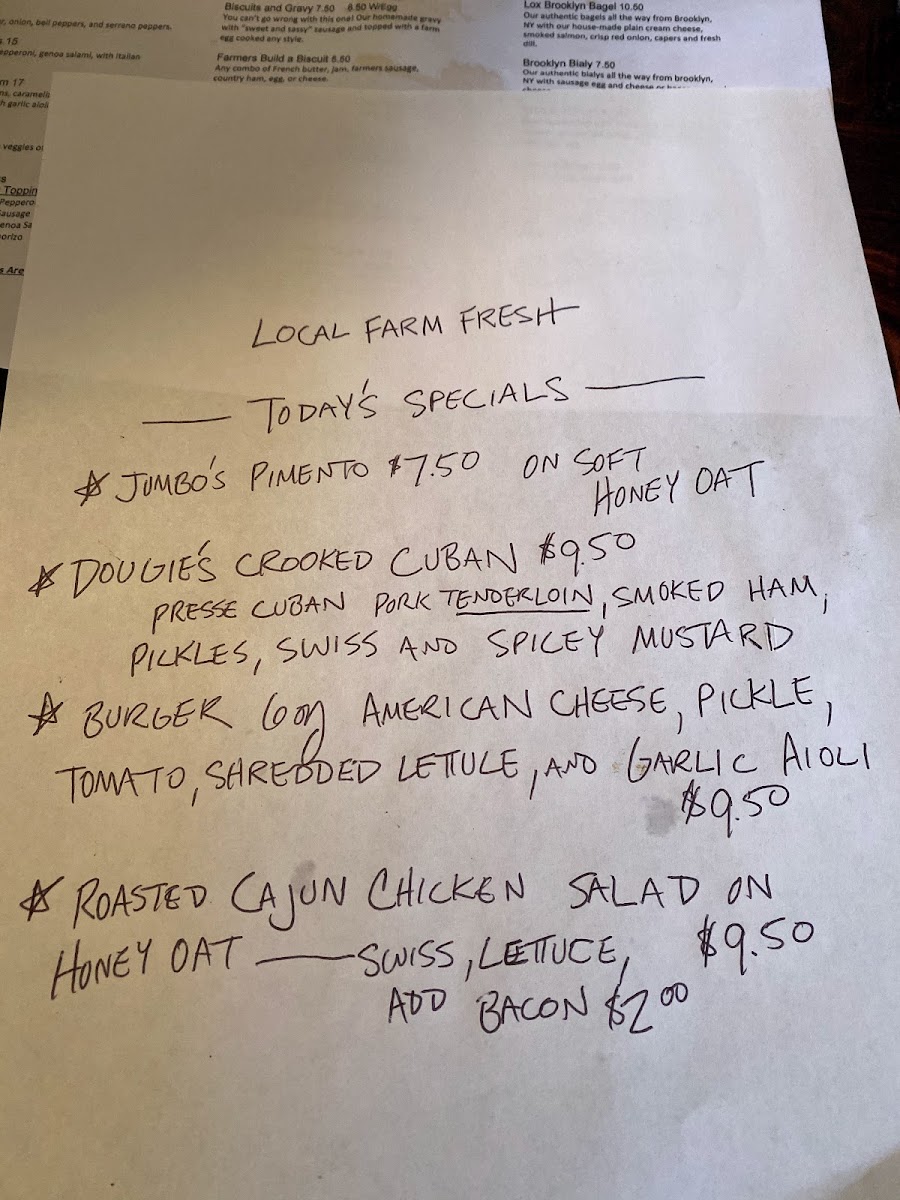 , onion, bell peppers, and serrano peppers.
15
pepperoni, genoa salami, with italian
17
garlic aioli
veggies
Toppin
Peppero
Sausage
enoa Sa
orizo
s Are
Biscuits and Gravy 7.50 8.50 W/Egg
You can't go wrong with this one! Our homemade gravy
with "sweet and sassy" sausage and topped with a farm
egg cooked any style.
Farmers Build a Biscuit 6.50
Any combo of French butter, jam, farmers sausage,
country ham, egg, or cheese.
Lox Brooklyn Bagel 10.50
Our authentic bagels all the way from Brooklyn,
NY with our house-made plain cream cheese,
smoked salmon, crisp red onion, capers and fresh
dill.
Brooklyn Bialy 7.50
Our authentic bialys all the way from brooklyn,
NY with sausage egg and cheese or
LOCAL FARM FRESH
— TODAY'S SPECIALS —
☆ JUMBO'S PIMENTO $7.50 ON SOFT
HONEY OAT
☆ DOUGIE'S CROOKED CUBAN $9.50
PRESSE CUBAN PORK TENDERLOIN, SMOKED HAM,
PICKLES, SWISS AND SPICEY MUSTARD
☆ BURGER 6oz AMERICAN CHEESE, PICKLE,
TOMATO, SHREDDED LETTUCE, AND GARLIC AIOLI
$9.50
☆ ROASTED CAJUN CHICKEN SALAD ON
HONEY OAT — SWISS, LETTUCE, $9.50
ADD BACON $2.00